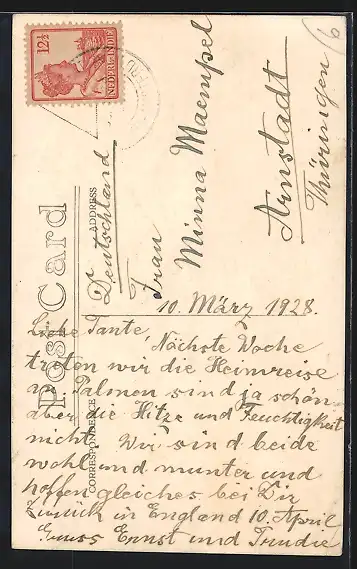 12½
NEDERL.INDIE
Post Card
ADDRESS
CORRESPONDENCE
Deutschland
Frau
Minna Maempel
Arnstadt
Thüringen
10. März 1928.
Liebe Tante,
Nächste Woche
treten wir die Heimreise
an. Palmen sind ja schön
aber die Hitze und Feuchtigkeit
nicht. Wir sind beide
wohl und munter und
hoffen gleiches bei Dir
Zurück in England 10. April
Gruss Ernst und Trudie